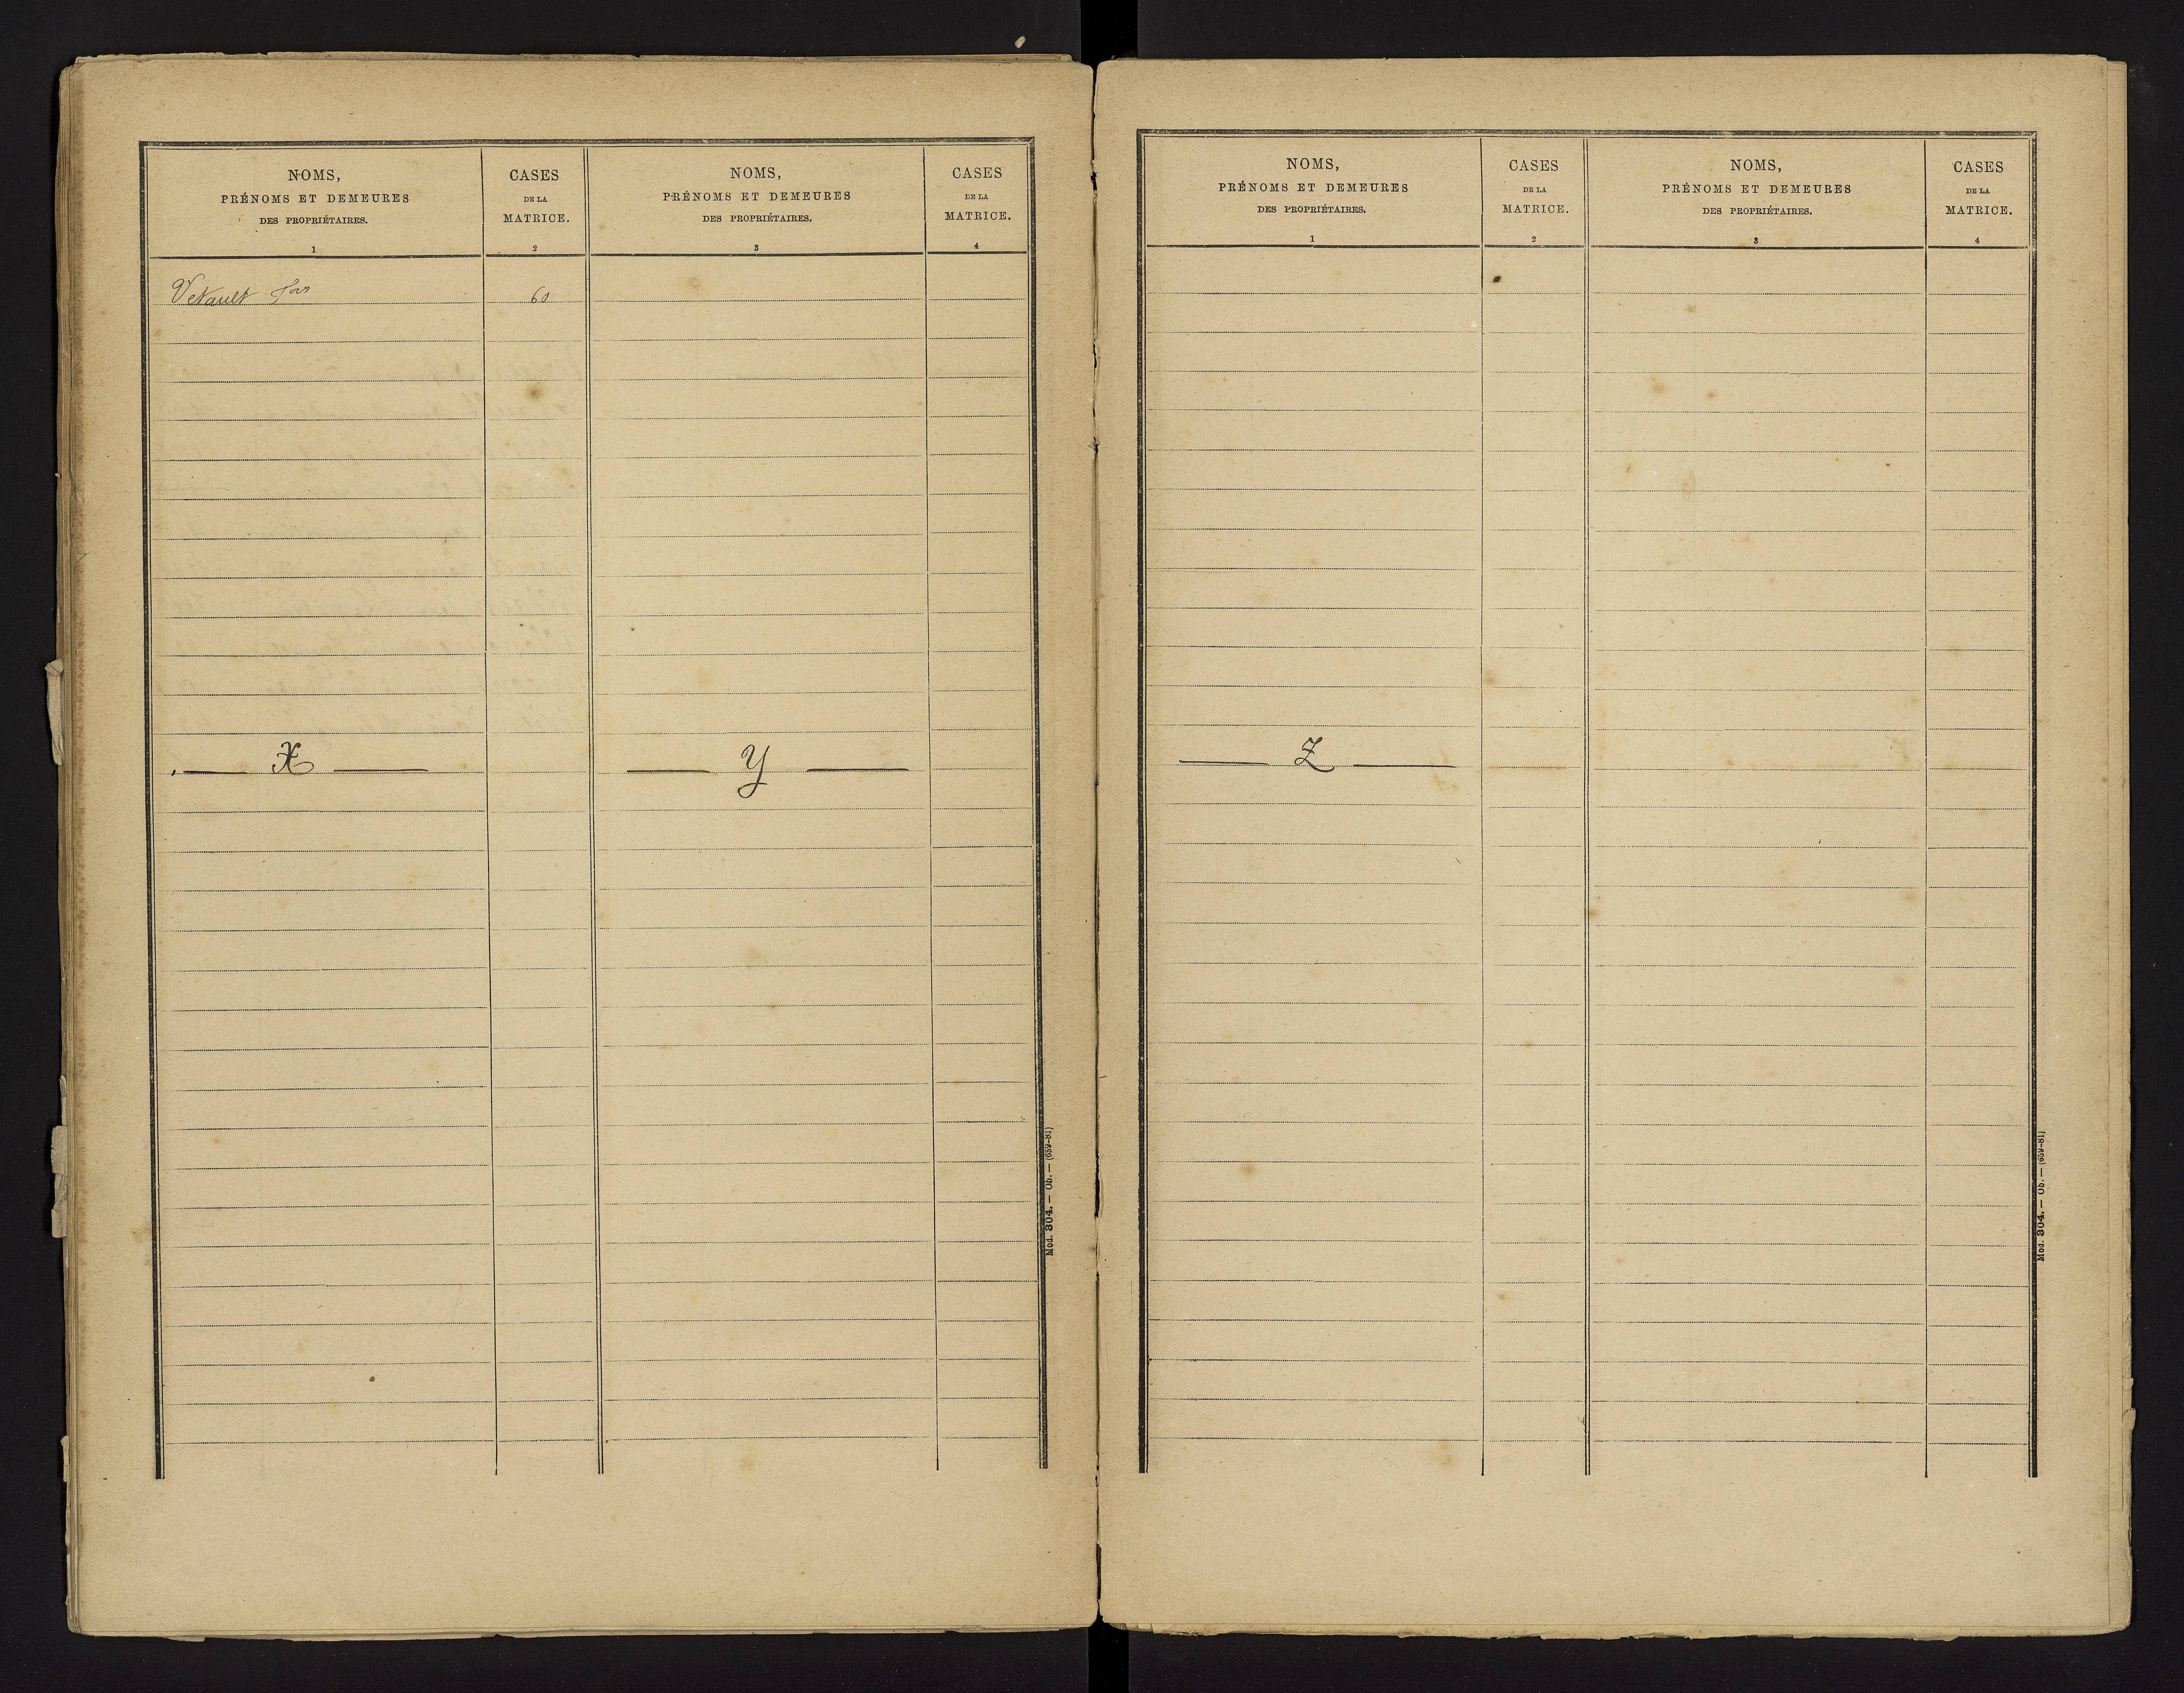 NOMS,
PRÉNOMS ET DEMEURES
DES PROPRIÉTAIRES.
1
CASES
DE LA
MATRICE.
2
NOMS,
PRÉNOMS ET DEMEURES
DES PROPRIÉTAIRES.
3
CASES
DE LA
MATRICE.
4
Vetault Fois
60
X
Y
Mod. 304. — Ob. — (659-81)
NOMS,
PRÉNOMS ET DEMEURES
DES PROPRIÉTAIRES.
1
CASES
DE LA
MATRICE.
2
NOMS,
PRÉNOMS ET DEMEURES
DES PROPRIÉTAIRES.
3
CASES
DE LA
MATRICE.
4
Z
Mod. 304. — Ob. — (659-81)